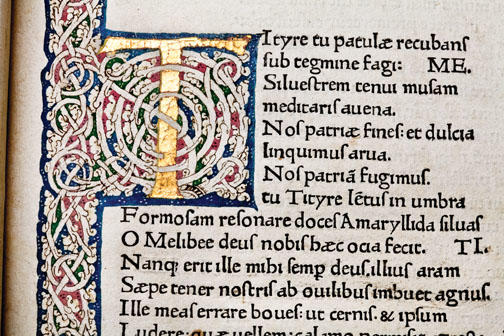 TItyre tu patulæ recubans
sub tegmine fagi: ME.
Siluestrem tenui musam
meditaris auena.
Nos patriæ fines: et dulcia
linquimus arua.
Nos patriã fugimus.
tu Tityre lẽtus in umbra
Formosam resonare doces Amaryllida siluas
O Melibee deus nobis hæc ocia fecit. TI.
Nanq; erit ille mihi semp deus, illius aram
Sæpe tener nostris ab ouilibus imbuet agnus.
Ille meas errare boues: ut cernis. & ipsum
Ludere: quæ uellem: calamo